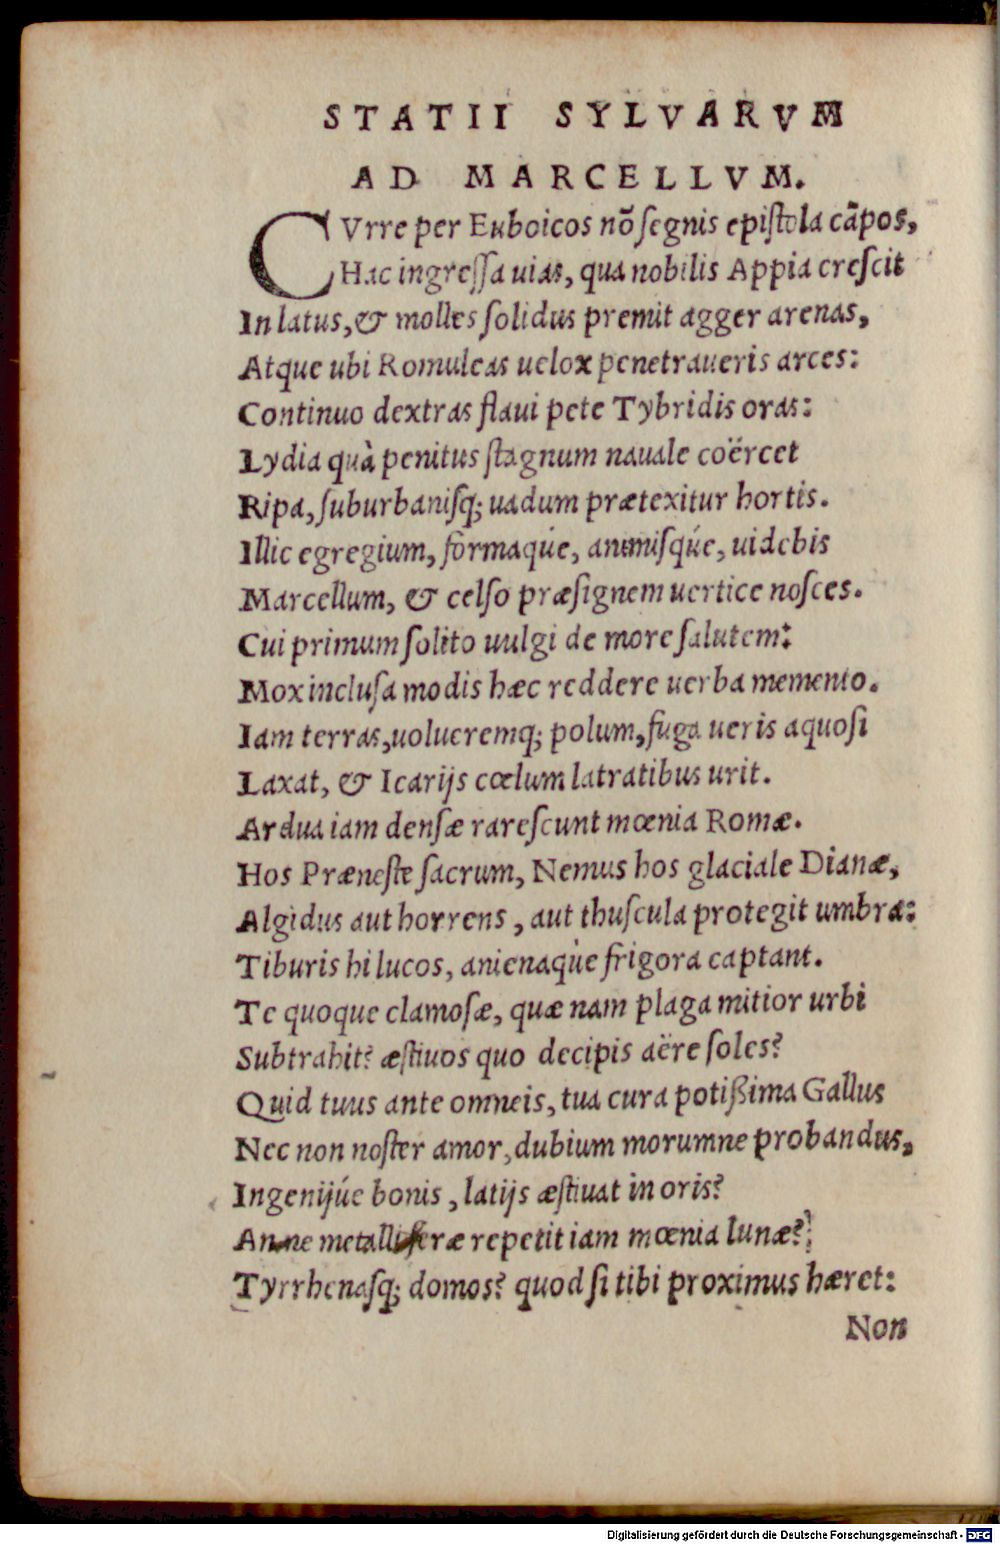 STATII SYLVARVM
AD MARCELLVM.
CVrre per Euboicos nō ſegnis epiſtola cāpos,
Hac ingreſſa uias, qua nobilis Appia creſcit
In latus, & molles ſolidus premit agger arenas,
Atque ubi Romuleas uelox penetraueris arces:
Continuo dextras flaui pete Tybridis oras:
Lydia quà penitus ſtagnum nauale coërcet
Ripa, ſuburbaniſq; uadum prætexitur hortis.
Illic egregium, formaqúe, animiſqúe, uidebis
Marcellum, & celſo præſignem uertice noſces.
Cui primum ſolito uulgi de more ſalutem:
Mox incluſa modis hæc reddere uerba memento.
Iam terras, uolucremq; polum, fuga ueris aquoſi
Laxat, & Icarijs cœlum latratibus urit.
Ardua iam denſæ rareſcunt mœnia Romæ.
Hos Præneſte ſacrum, Nemus hos glaciale Dianæ,
Algidus aut horrens, aut thuſcula protegit umbra:
Tiburis hi lucos, anienaqùe frigora captant.
Te quoque clamoſæ, quæ nam plaga mitior urbi
Subtrahit? æſtiuos quo decipis aëre ſoles?
Quid tuus ante omneis, tua cura potiſſima Gallus
Nec non noſter amor, dubium morumne probandus,
Ingenijúe bonis, latijs æſtiuat in oris?
Anne metalliferæ repetit iam mœnia lunæ?
Tyrrhenaſq; domos? quod ſi tibi proximus hæret:
Non
Digitalisierung gefördert durch die Deutsche Forschungsgemeinschaft - DFG